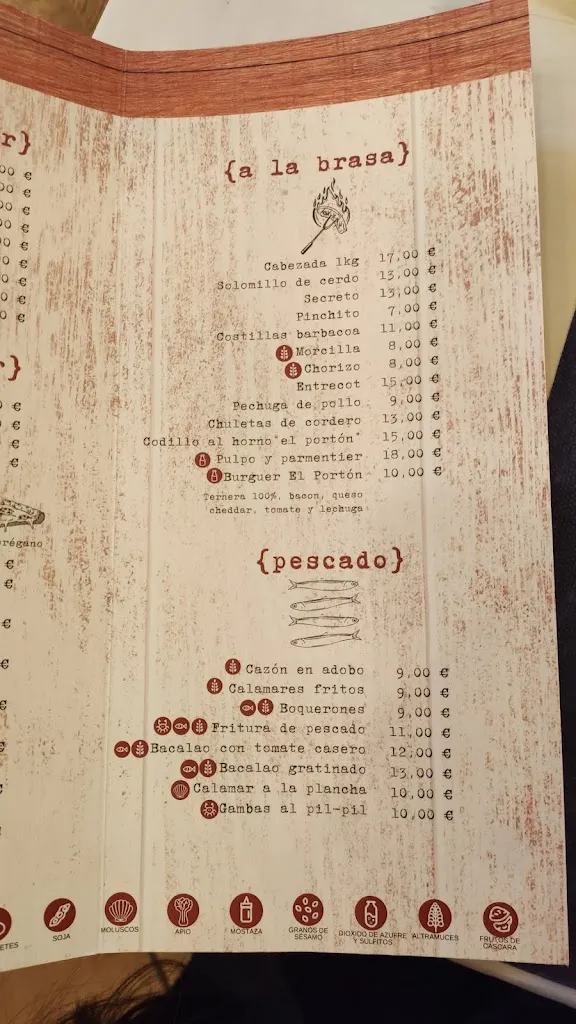 r}
00 €
00 €
00 €
00 €
00 €
00 €
00 €
00 €
0 €
r}
0 €
€
€
€
orégano
€
€
€
€
{a la brasa}
Cabezada 1kg 17,00 €
Solomillo de cerdo 13,00 €
Secreto 13,00 €
Pinchito 7,00 €
Costillas barbacoa 11,00 €
Morcilla 8,00 €
Chorizo 8,00 €
Entrecot 15,00 €
Pechuga de pollo 9,00 €
Chuletas de cordero 13,00 €
Codillo al horno"el portón" 15,00 €
Pulpo y parmentier 18,00 €
Burguer El Portón 10,00 €
Ternera 100%, bacon, queso
cheddar, tomate y lechuga
{pescado}
Cazón en adobo 9,00 €
Calamares fritos 9,00 €
Boquerones 9,00 €
Fritura de pescado 11,00 €
Bacalao con tomate casero 12,00 €
Bacalao gratinado 13,00 €
Calamar a la plancha 10,00 €
Gambas al pil-pil 10,00 €
ETES
SOJA
MOLUSCOS
APIO
MOSTAZA
GRANOS DE
SÉSAMO
DIÓXIDO DE AZUFRE
Y SULFITOS
ALTRAMUCES
FRUTOS DE
CÁSCARA